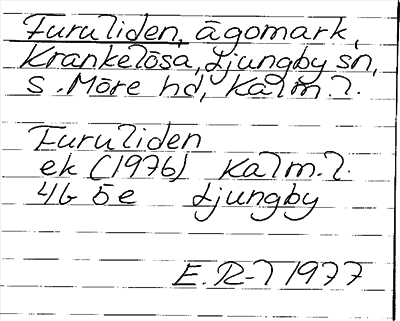 Furuliden, ägomark,
Krankelösa, Ljungby sn,
S. Möre hd, Kalm. l.
Furuliden
ek (1976) Kalm. l.
4G 5e Ljungby
E. R-l 1977